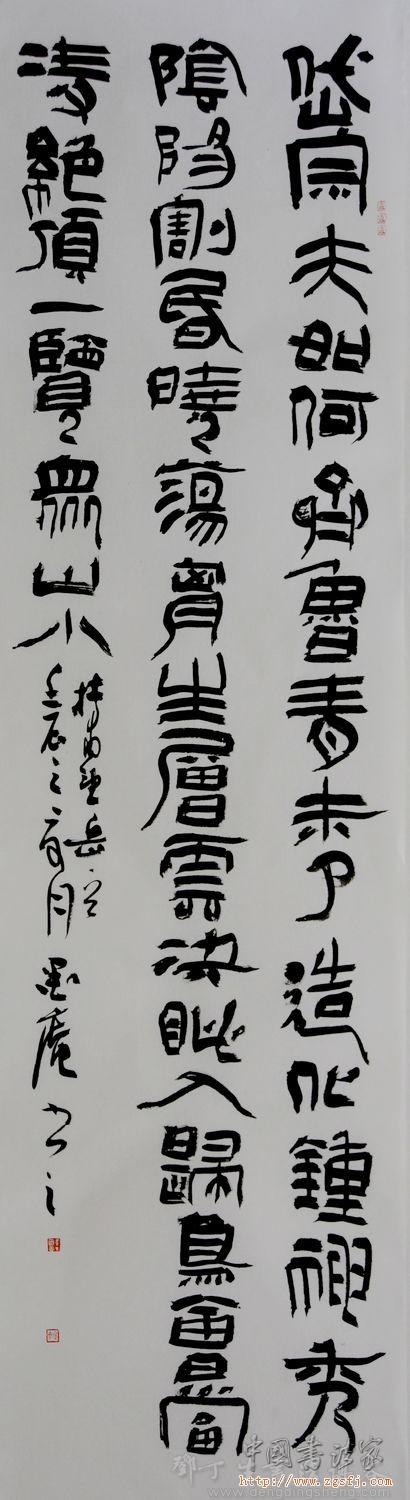 岱宗夫如何齊魯青未了造化鍾神秀
陰陽割昏曉蕩胷生層雲決眥入歸鳥會當
凌絕頂一覽眾山小
杜甫望岳
壬辰之月墨庵書之
中國書法家
http://www.zgsfj.com
www.dengdingsheng.com